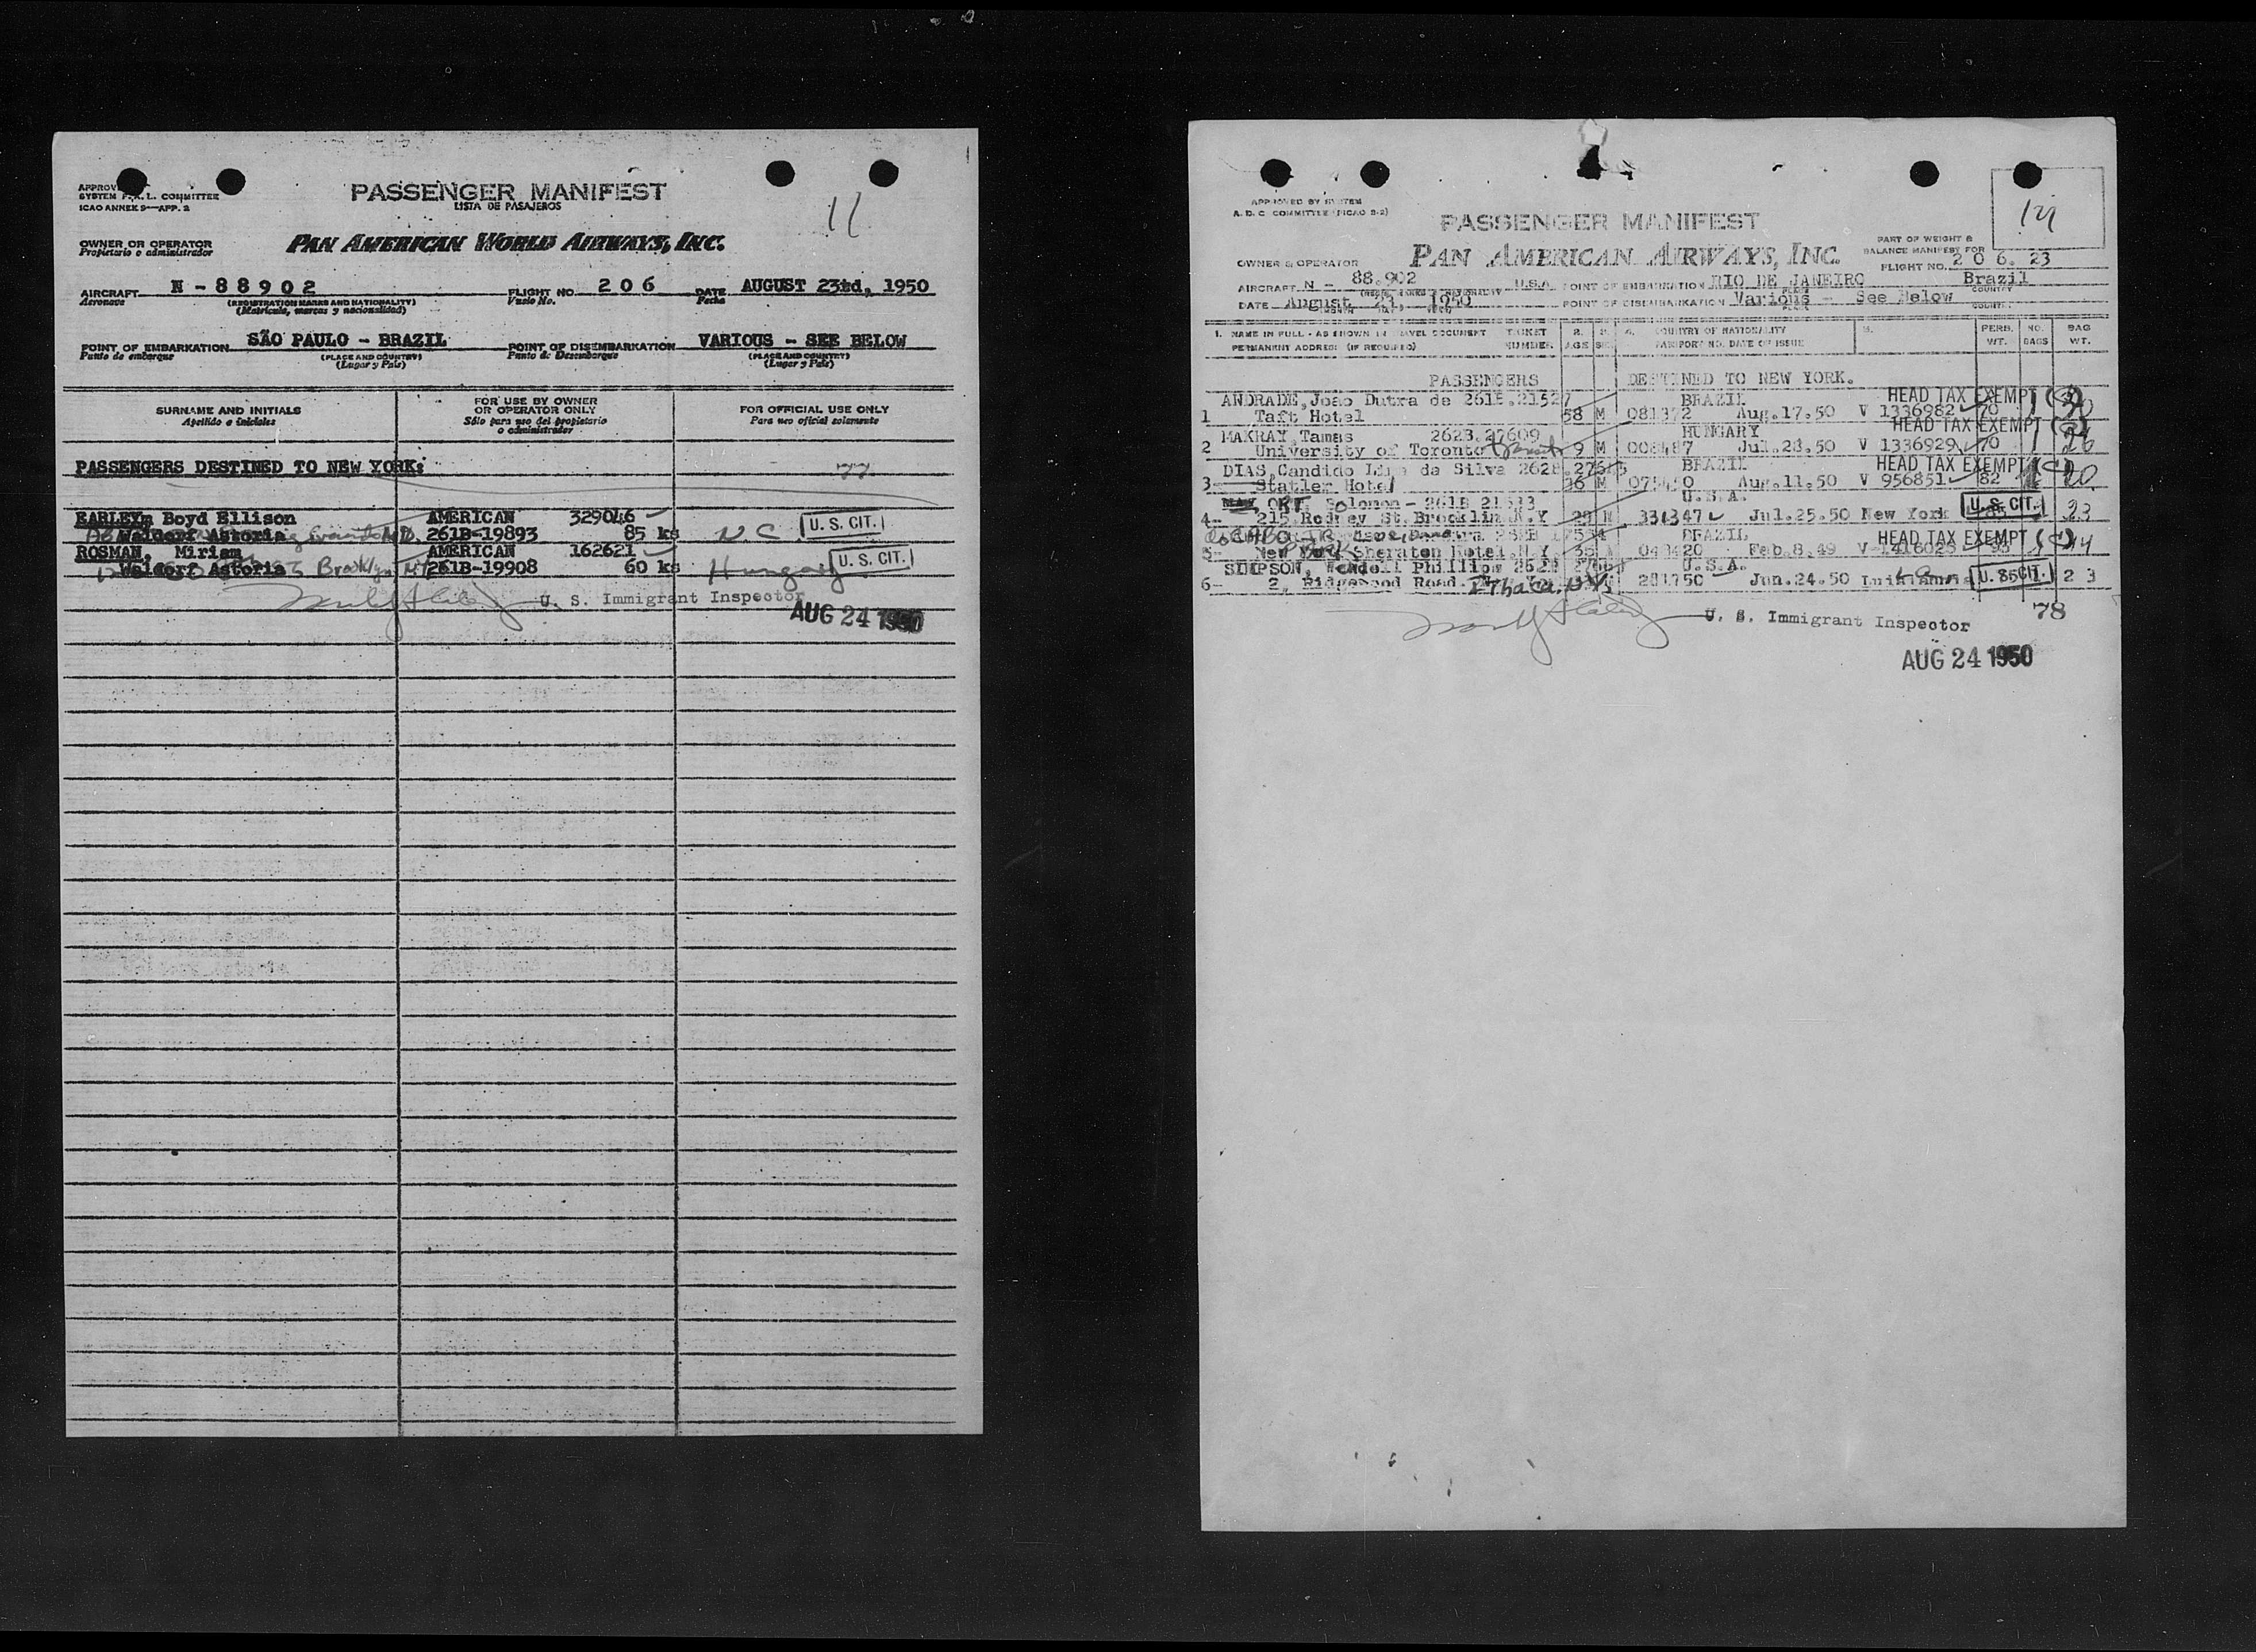 APPROV
SYSTEM F.A.L. COMMITTEE
ICAO ANNEX 9—APP. 2
PASSENGER MANIFEST
LISTA DE PASAJEROS
11
OWNER OR OPERATOR
Propietario o administrador
PAN AMERICAN WORLD AIRWAYS, INC.
AIRCRAFT N - 88902 FLIGHT NO. 206 DATE AUGUST 23rd, 1950
Aeronave (REGISTRATION MARKS AND NATIONALITY) Vuelo No. Fecha
(Matricula, marcas y nacionalidad)
POINT OF EMBARKATION SÃO PAULO - BRAZIL POINT OF DISEMBARKATION VARIOUS - SEE BELOW
Punto de embarque (PLACE AND COUNTRY) Punto de Desembarque (PLACE AND COUNTRY)
(Lugar y País) (Lugar y País)
SURNAME AND INITIALS
Apellido e iniciales
FOR USE BY OWNER
OR OPERATOR ONLY
Sólo para uso del propietario
o administrador
FOR OFFICIAL USE ONLY
Para uso oficial solamente
PASSENGERS DESTINED TO NEW YORK: 77
EARLEY, Boyd Ellison AMERICAN 329046
Waldorf Astoria 261B-19893 85 ks N.C U.S. CIT.
ROSMAN, Miriam AMERICAN 162621
Waldorf Astoria Brooklyn 261B-19908 60 ks Hungary U.S. CIT.
U. S. Immigrant Inspector
AUG 24 1950
APPROVED BY SYSTEM
A. D. C. COMMITTEE (PICAO 9-2)
PASSENGER MANIFEST
PAN AMERICAN AIRWAYS, INC.
PART OF WEIGHT &
BALANCE MANIFEST FOR
FLIGHT NO. 206. 23
OWNER & OPERATOR
AIRCRAFT N - 88.902 U.S.A. POINT OF EMBARKATION RIO DE JANEIRO Brazil
DATE August 23, 1950 POINT OF DISEMBARKATION Various - See Below
1. NAME IN FULL - AS SHOWN IN TRAVEL DOCUMENT TICKET 2. 3. 4. COUNTRY OF NATIONALITY 5. PERS. NO. BAG
PERMANENT ADDRESS (IF REQUIRED) NUMBER AGE SEX PASSPORT NO. DATE OF ISSUE WT. BAGS WT.
PASSENGERS DESTINED TO NEW YORK.
ANDRADE, João Dutra de 261B.21527 BRAZIL HEAD TAX EXEMPT
1 Taft Hotel 58 M 081372 Aug.17.50 V 1336982 70
MAKRAY, Tamas 2623.27609 HUNGARY HEAD TAX EXEMPT
2 University of Toronto 9 M Jul.28.50 V 1336929 70 26
DIAS, Candido da Silva BRAZIL HEAD TAX EXEMPT
3 Statler Hotel 36 M Aug.11.50 V 956851 82 20
ORT, Solomon - 261B 21513 U.S.A.
4 215 Rodney St. Brooklin N.Y Jul.25.50 New York U.S. CIT. 23
BRAZIL HEAD TAX EXEMPT
5 New York Sheraton Hotel.N.Y 35 Feb.8.49 44
SIMPSON, Wendell Phillips U.S.A.
6 2, Ridgewood Road. Ithaca, N.Y. Jun.24.50 U.S. CIT. 23
78
U. S. Immigrant Inspector
AUG 24 1950